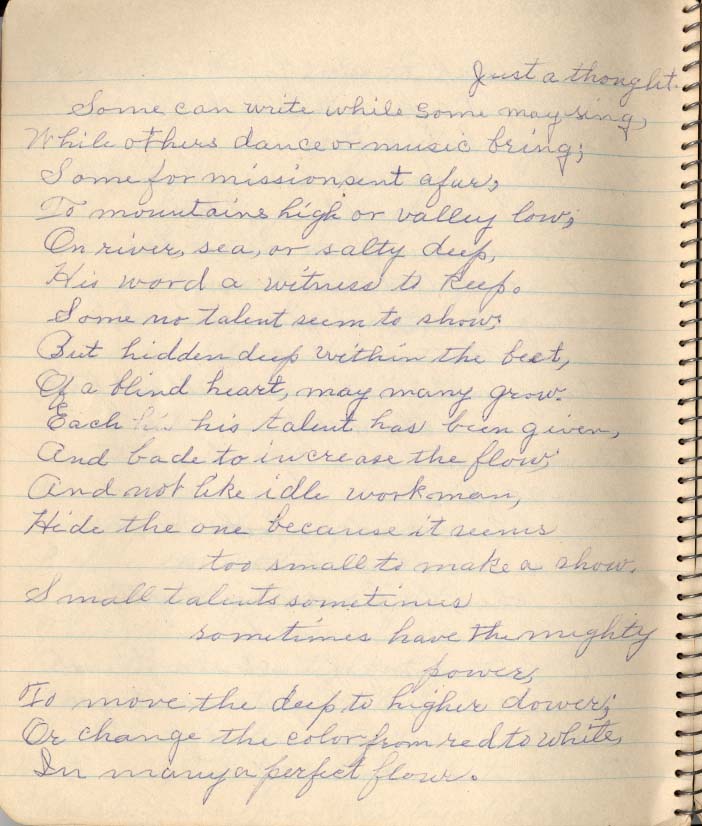 Just a thought.
Some can write while some may sing,
While others dance or music bring;
Some for mission sent afur,
To mountains high or valley low;
On river, sea, or salty deep,
His word a witness to keep.
Some no talent seem to show;
But hidden deep within the beet,
Of a blind heart, may many grow.
Each his talent has been given,
And bade to increase the flow;
And not like idle workman,
Hide the one because it seems
too small to make a show.
Small talents sometimes
sometimes have the mighty
power,
To move the deep to higher dower;
Or change the color from red to white,
In many a perfect flour.